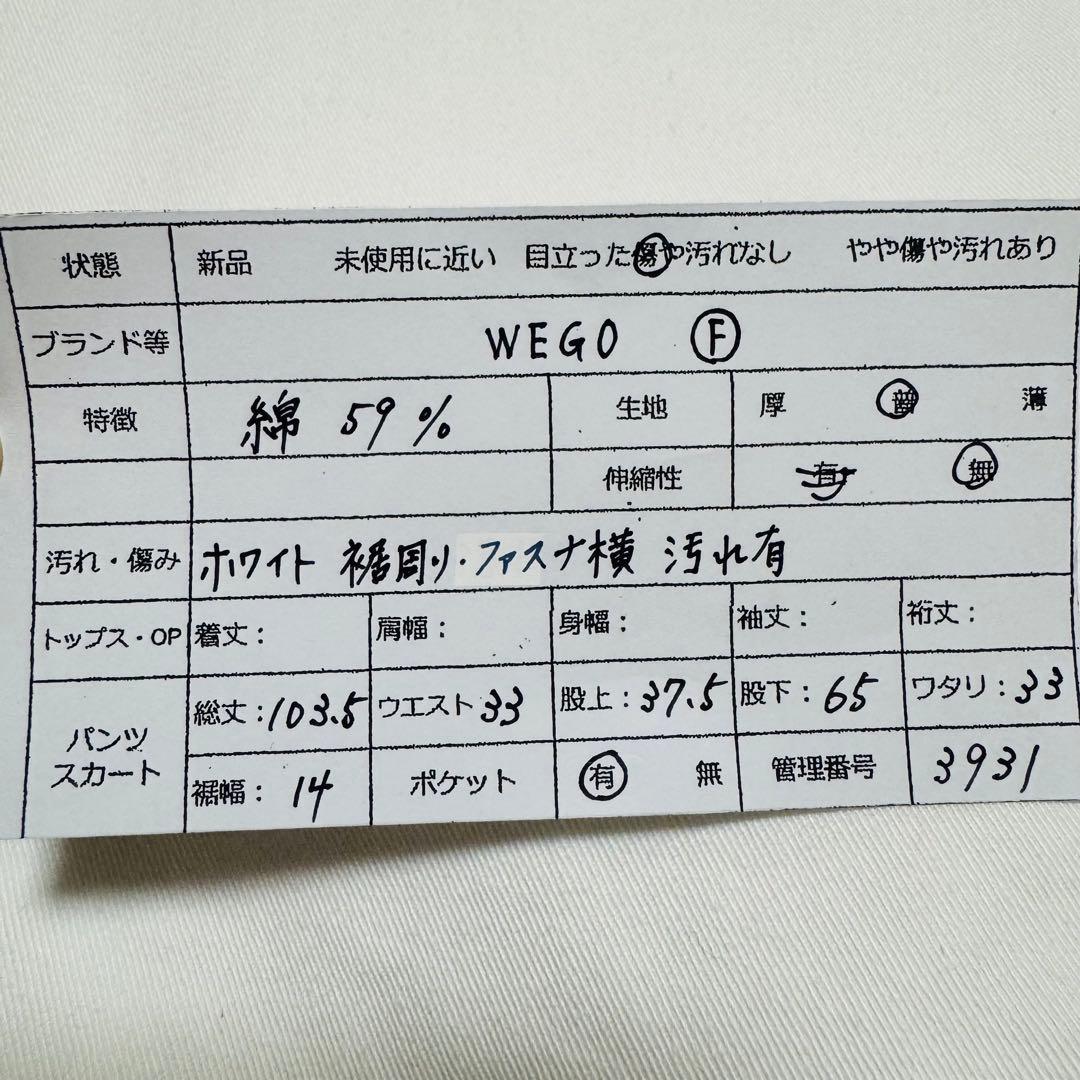 状態 新品 未使用に近い 目立った傷や汚れなし やや傷や汚れあり
ブランド等 WEGO F
特徴 綿 59% 生地 厚 普 薄
伸縮性 有 無
汚れ・傷み ホワイト 裾周り・ファスナ横 汚れ有
トップス・OP 着丈: 肩幅: 身幅: 袖丈: 裄丈:
パンツ スカート 総丈:103.5 ウエスト33 股上:37.5 股下:65 ワタリ:33
裾幅: 14 ポケット 有 無 管理番号 3931